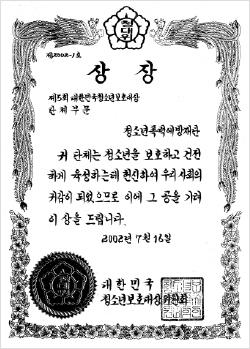 제2002-1호
상장
제5회 대한민국청소년보호대상
단체부문
청소년폭력예방재단
귀 단체는 청소년을 보호하고 건전
하게 육성하는데 헌신하여 우리사회의
귀감이 되었으므로 이에 그 공을 기려
이 상을 드립니다.
2002년 7월 16일
대한민국
청소년보호대상위원회